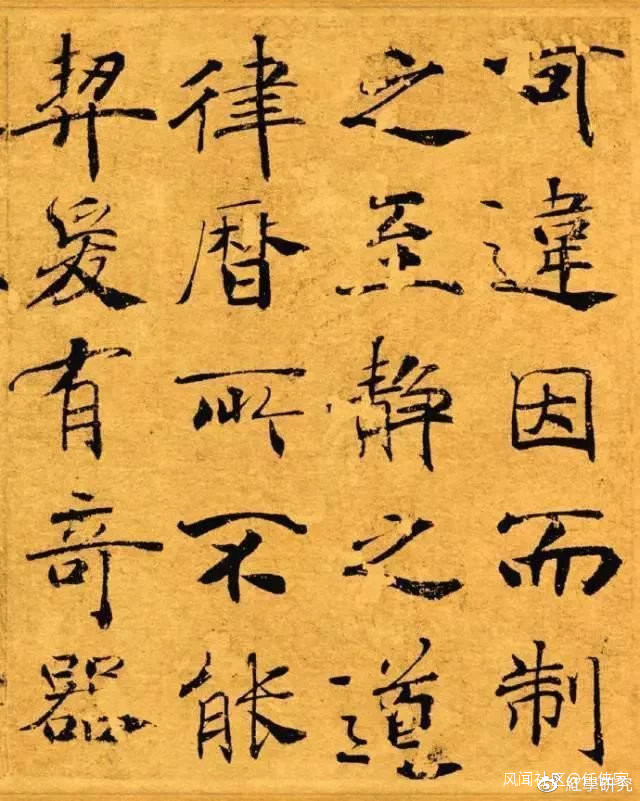 可違因而制
之至靜之道
律曆所不能
契爰有奇器
风闻社区@任侠客
@紅學研究